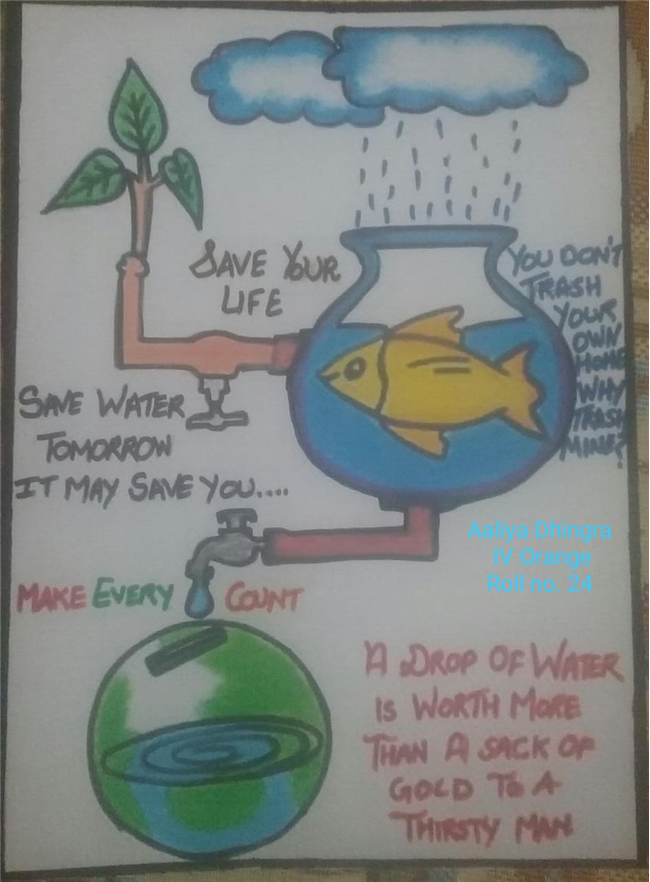 SAVE YOUR
LIFE
YOU DON'T
TRASH
YOUR
OWN
HOME
WHY
TRASH
MINE?
SAVE WATER
TOMORROW
IT MAY SAVE YOU....
Aaliya Dhingra
IV Orange
Roll no. 24
MAKE EVERY COUNT
A DROP OF WATER
IS WORTH MORE
THAN A SACK OF
GOLD TO A
THIRSTY MAN